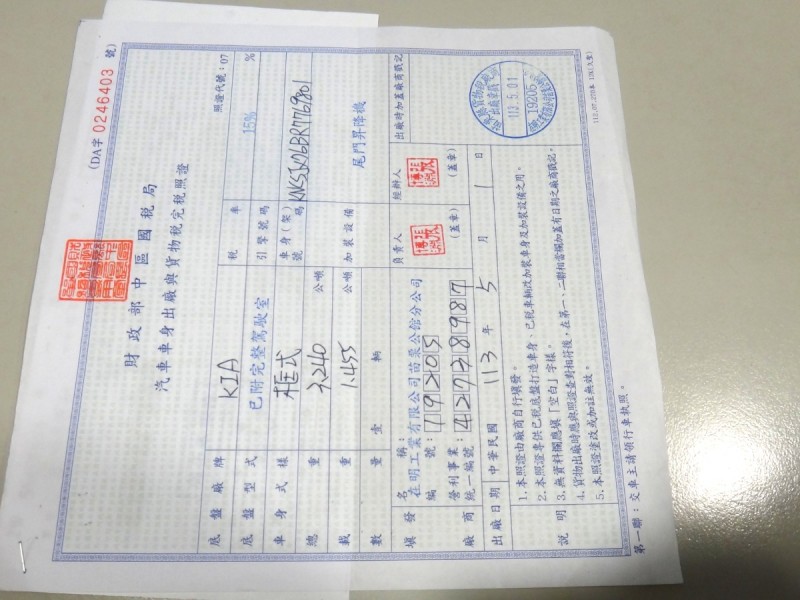 (DA字 0246403 號)
財政部中區國稅局
汽車車身出廠與貨物稅完稅照證
照證代號：07
底盤廠牌 KIA 稅率 15% %
底盤型式 已附完整駕駛室 引擎號碼
車身式樣 框式 車身(架)號碼
總重 3.240 公噸
載重 1.455 公噸 加裝設備 尾門昇降機
數量 壹輛
填發廠商
名稱：在明工業有限公司苗栗公館分公司
編號：19205
營利事業統一編號：42938987
負責人 (蓋章)
經辦人 (蓋章)
出廠時加蓋廠商戳記
113.5.01
19205
出廠日期 中華民國 113 年 5 月 1 日
說明
1.本照證由廠商自行填發。
2.本照證專供已稅底盤打造車身、已稅車輛改加裝車身及加裝設備之用。
3.無資料欄應填「空白」字樣。
4.貨物出廠時應與照證查對相符後，在第一、二聯相當欄加蓋有日期之廠商戳記。
5.本照證塗改或加註無效。
第一聯：交車主請領行車執照。